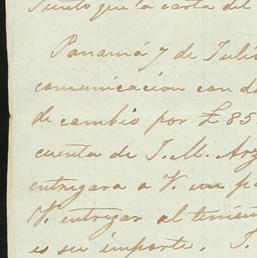 Siento que la carta del
Panamá 7 de Juli
comunicacion con d
de cambio por £85,
cuenta de J. M. Arz
entregara a V. un p
V. entregar al
es su importe. J.